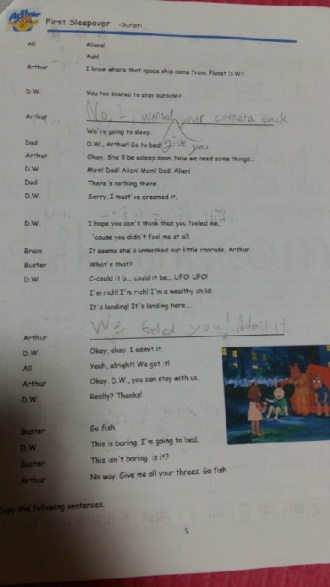 Arthur
First Sleepover -Script-
All Aliens!
Aah!
Arthur I know where that space ship came from. Planet D.W.!
D.W. You too scared to stay outside?
Arthur No, I wanted your camera back
give you
We're going to sleep.
Dad D.W., Arthur! Go to bed!
Arthur Okay. She'll be asleep soon. Now we need some things...
D.W. Mom! Dad! Alien! Mom! Dad! Alien!
Dad There's nothing there.
D.W. Sorry, I must've dreamed it.
D.W. I hope you don't think that you fooled me,
'cause you didn't fool me at all.
Brain It seems she's unmasked our little charade, Arthur.
Buster What's that?
D.W. C-could it b... could it be... UFO! UFO!
I'm rich! I'm rich! I'm a wealthy child.
It's landing! It's landing here...
Arthur We you! Admit it
D.W. Okay, okay. I admit it.
All Yeah, alright! We got it!
Arthur Okay, D.W., you can stay with us.
D.W. Really? Thanks!
Buster Go fish.
D.W. This is boring. I'm going to bed.
Buster This isn't boring, is it?
Arthur No way. Give me all your threes. Go fish
Copy the following sentences.
5